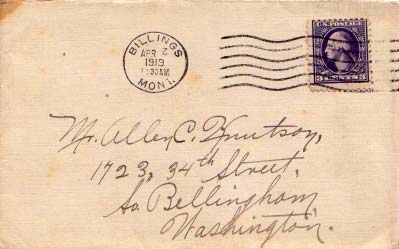 BILLINGS
APR 2
1919
11 30AM
MONT.
U.S. POSTAGE
3 CENTS 3
Mr. Allen C. Knutson,
1723, 34th Street.
So Bellingham
Washington.